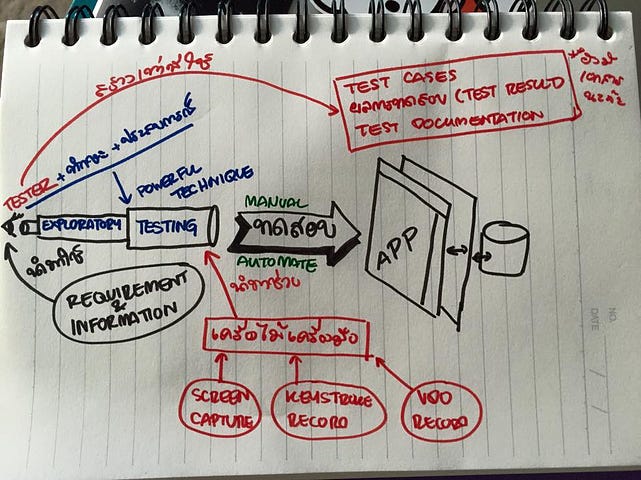 สร้างเท่าที่ใช้
TEST CASES
ผลการทดสอบ (TEST RESULT)
TEST DOCUMENTATION
TESTER + ทักษะ + ประสบการณ์
POWERFUL
TECHNIQUE
EXPLORATORY
TESTING
MANUAL
ทดสอบ
AUTOMATE
APP
นำมาใช้
นำมาช่วย
REQUIREMENT
&
INFORMATION
เครื่องไม้เครื่องมือ
SCREEN
CAPTURE
KEYSTROKE
RECORD
VDO
RECORD
NO.
DATE
/ /